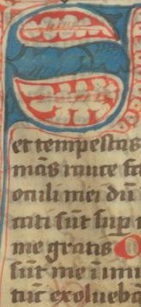 S
et tempestas
mãs rauce fc
oculi mei dũ
cati sũt sup
me gratis
sũt me ĩimi
tũc exolueba